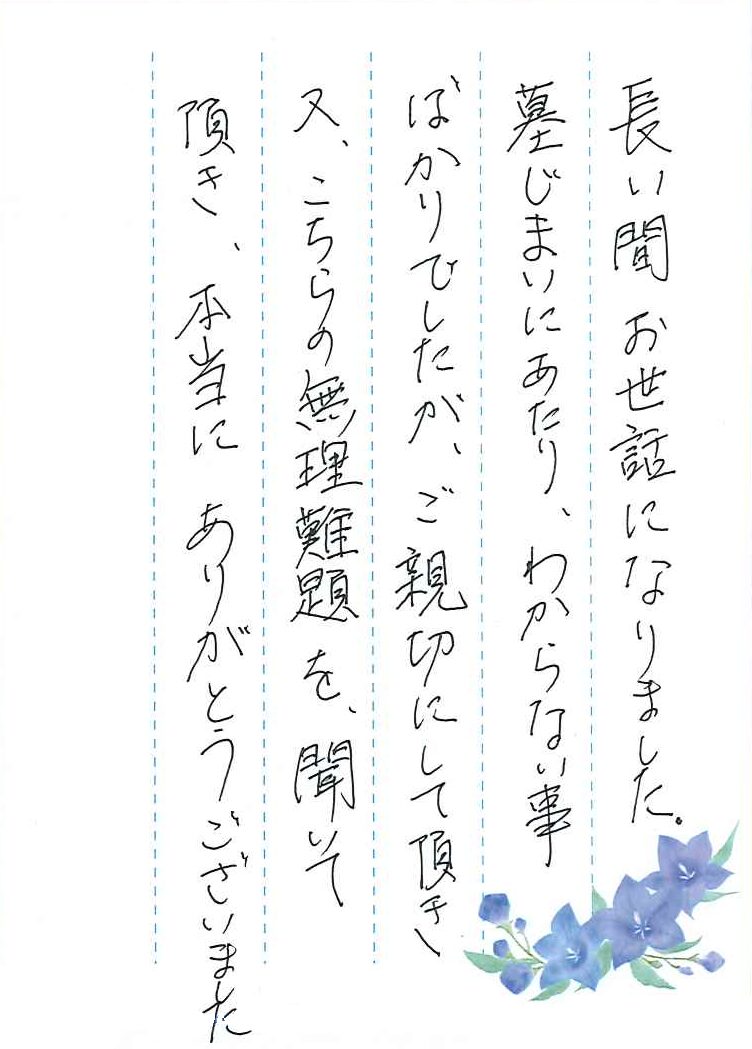 長い間 お世話になりました。
墓じまいにあたり、わからない事
ばかりでしたが、ご親切にして頂き
又、こちらの無理難題を、聞いて
頂き、本当に ありがとうございました